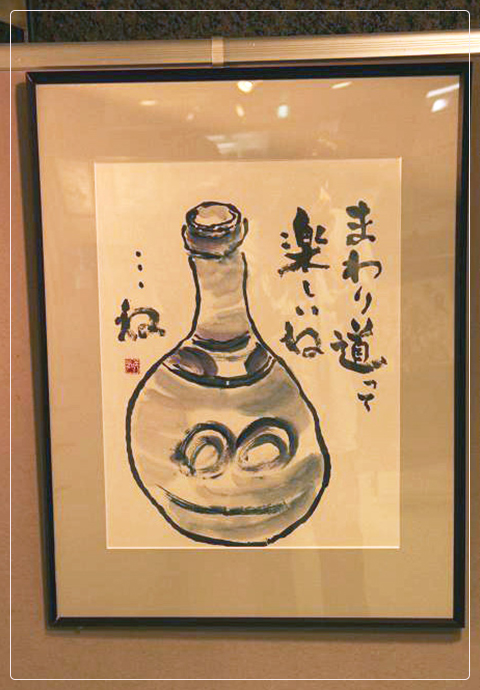 まわり道って
楽しいね
…ね